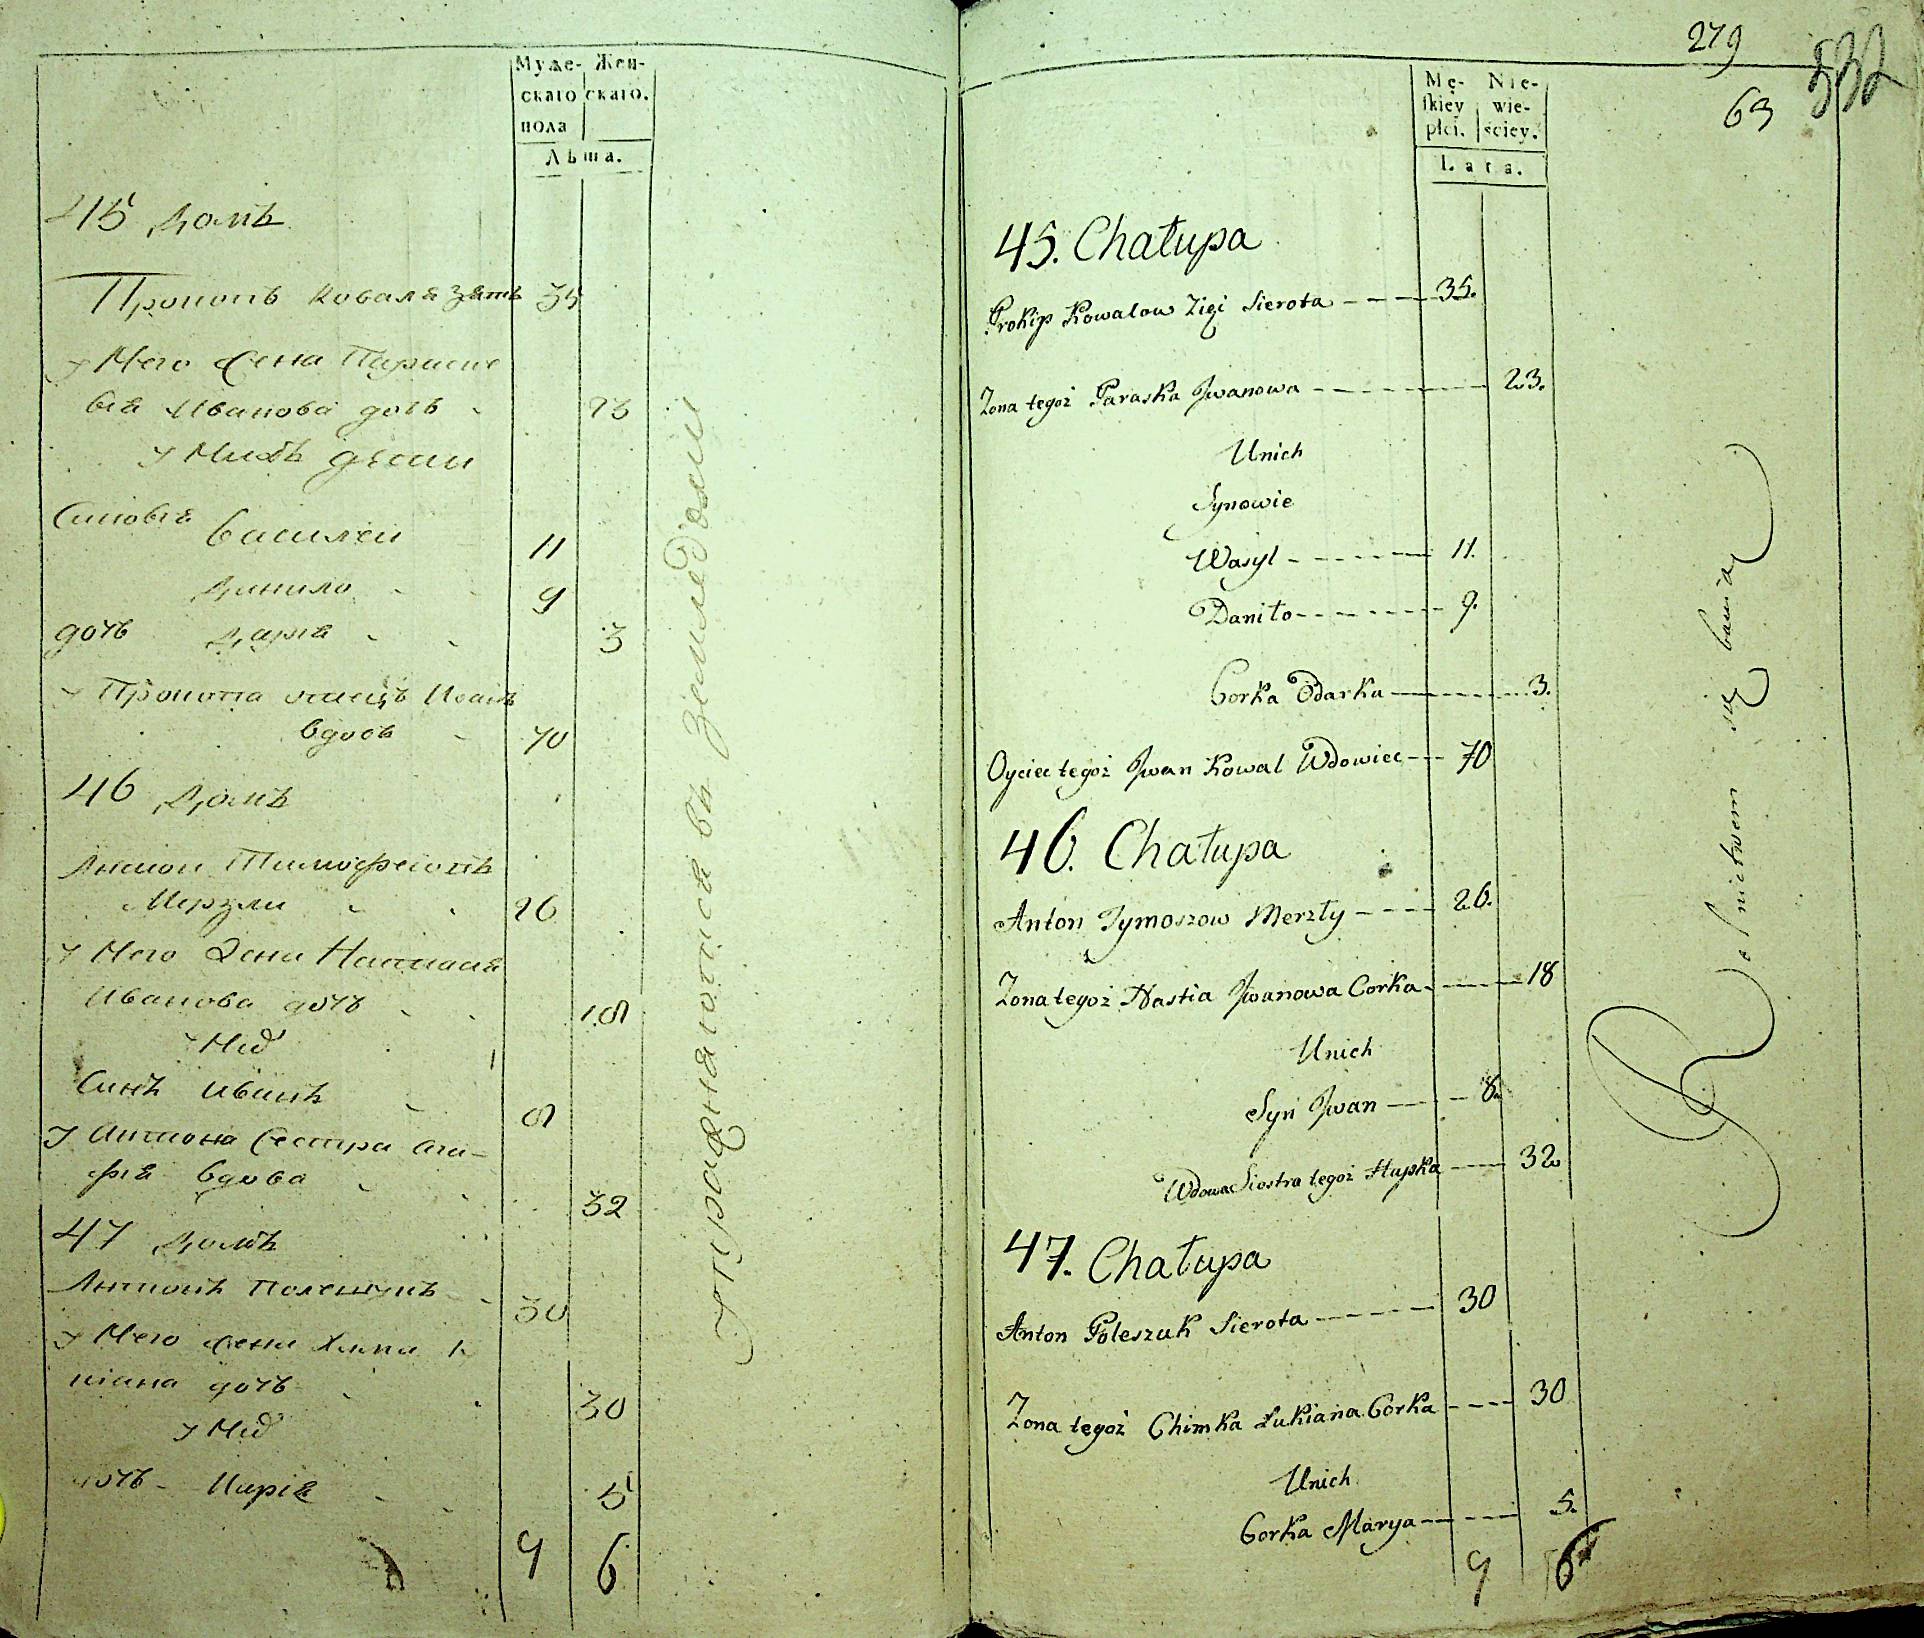 Муже- Жен-
скаго скаго.
пола
Лѣта.
45 Домъ
Прокопъ Коваля зять 35
у Него жена Параске
вія Иванова дочь 23
у Нихъ дѣти
Синовія Василей 11
Данило 9
дочь Дарія 3
у Прокопа отецъ Иванъ
вдовъ 70
46 Домъ
Антон Тимофеювъ
Мерзли 26
у Него жена Настасія
Иванова дочь 18
у Них
Синъ Иванъ 8
у Антона Сестра Ага-
фія вдова 32
47 Домъ
Антонъ Полешукъ 30
у Него жена Химка
кіана дочь 30
у Них
дочь Марія 5
9 6
упражняются въ земледелии
279
532
63
Mę- Nie-
skiey wie-
płci. ściey.
Lata.
45. Chałupa
Prokip Kowalow Zięć Sierota 35.
Zona tegoż Paraska Jwanowa 23.
Unich
Synowie
Wasyl 11.
Daniło 9.
Corka Odarka 3.
Oyciec tegoż Jwan Kowal Wdowiec 70
46. Chałupa
Anton Tymoszow Merzły 26.
Zona tegoż Nastia Jwanowa Corka 18
Unich
Syn Jwan 8.
Wdowa Siostra tegoż Hapka 32
47. Chałupa
Anton Poleszuk Sierota 30
Zona tegoż Chimka Łukiana Corka 30
Unich
Corka Marya 5.
9 6
Rolnictwem się bawią